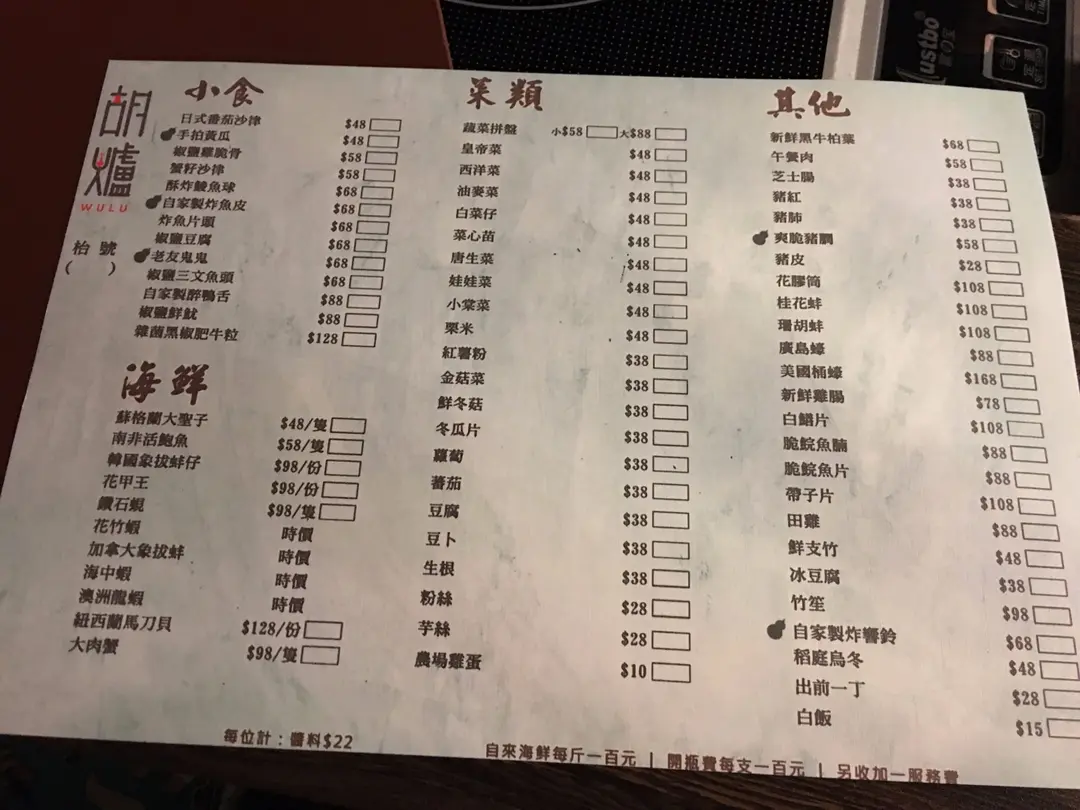 胡爐
WULU
枱號
(    )
小食
日式番茄沙律 $48
手拍黃瓜 $48
椒鹽雞脆骨 $58
蟹籽沙律 $58
酥炸鯪魚球 $68
自家製炸魚皮 $68
炸魚片頭 $68
椒鹽豆腐 $68
老友鬼鬼 $68
椒鹽三文魚頭 $68
自家製醉鴨舌 $88
椒鹽鮮魷 $88
雜菌黑椒肥牛粒 $128
海鮮
蘇格蘭大聖子 $48/隻
南非活鮑魚 $58/隻
韓國象拔蚌仔 $98/份
花甲王 $98/份
鑽石蜆 $98/隻
花竹蝦 時價
加拿大象拔蚌 時價
海中蝦 時價
澳洲龍蝦 時價
紐西蘭馬刀貝 $128/份
大肉蟹 $98/隻
菜類
蔬菜拼盤 小$58 大$88
皇帝菜 $48
西洋菜 $48
油麥菜 $48
白菜仔 $48
菜心苗 $48
唐生菜 $48
娃娃菜 $48
小棠菜 $48
粟米 $48
紅薯粉 $38
金菇菜 $38
鮮冬菇 $38
冬瓜片 $38
蘿蔔 $38
蕃茄 $38
豆腐 $38
豆卜 $38
生根 $38
粉絲 $28
芋絲 $28
農場雞蛋 $10
其他
新鮮黑牛柏葉 $68
午餐肉 $58
芝士腸 $38
豬紅 $38
豬肺 $38
爽脆豬膶 $58
豬皮 $28
花膠筒 $108
桂花蚌 $108
珊胡蚌 $108
廣島蠔 $88
美國桶蠔 $168
新鮮雞腸 $78
白鱔片 $108
脆鯇魚腩 $88
脆鯇魚片 $88
帶子片 $108
田雞 $88
鮮支竹 $48
冰豆腐 $38
竹笙 $98
自家製炸響鈴 $68
稻庭烏冬 $48
出前一丁 $28
白飯 $15
每位計：醬料$22
自來海鮮每斤一百元 | 開瓶費每支一百元 | 另收加一服務費